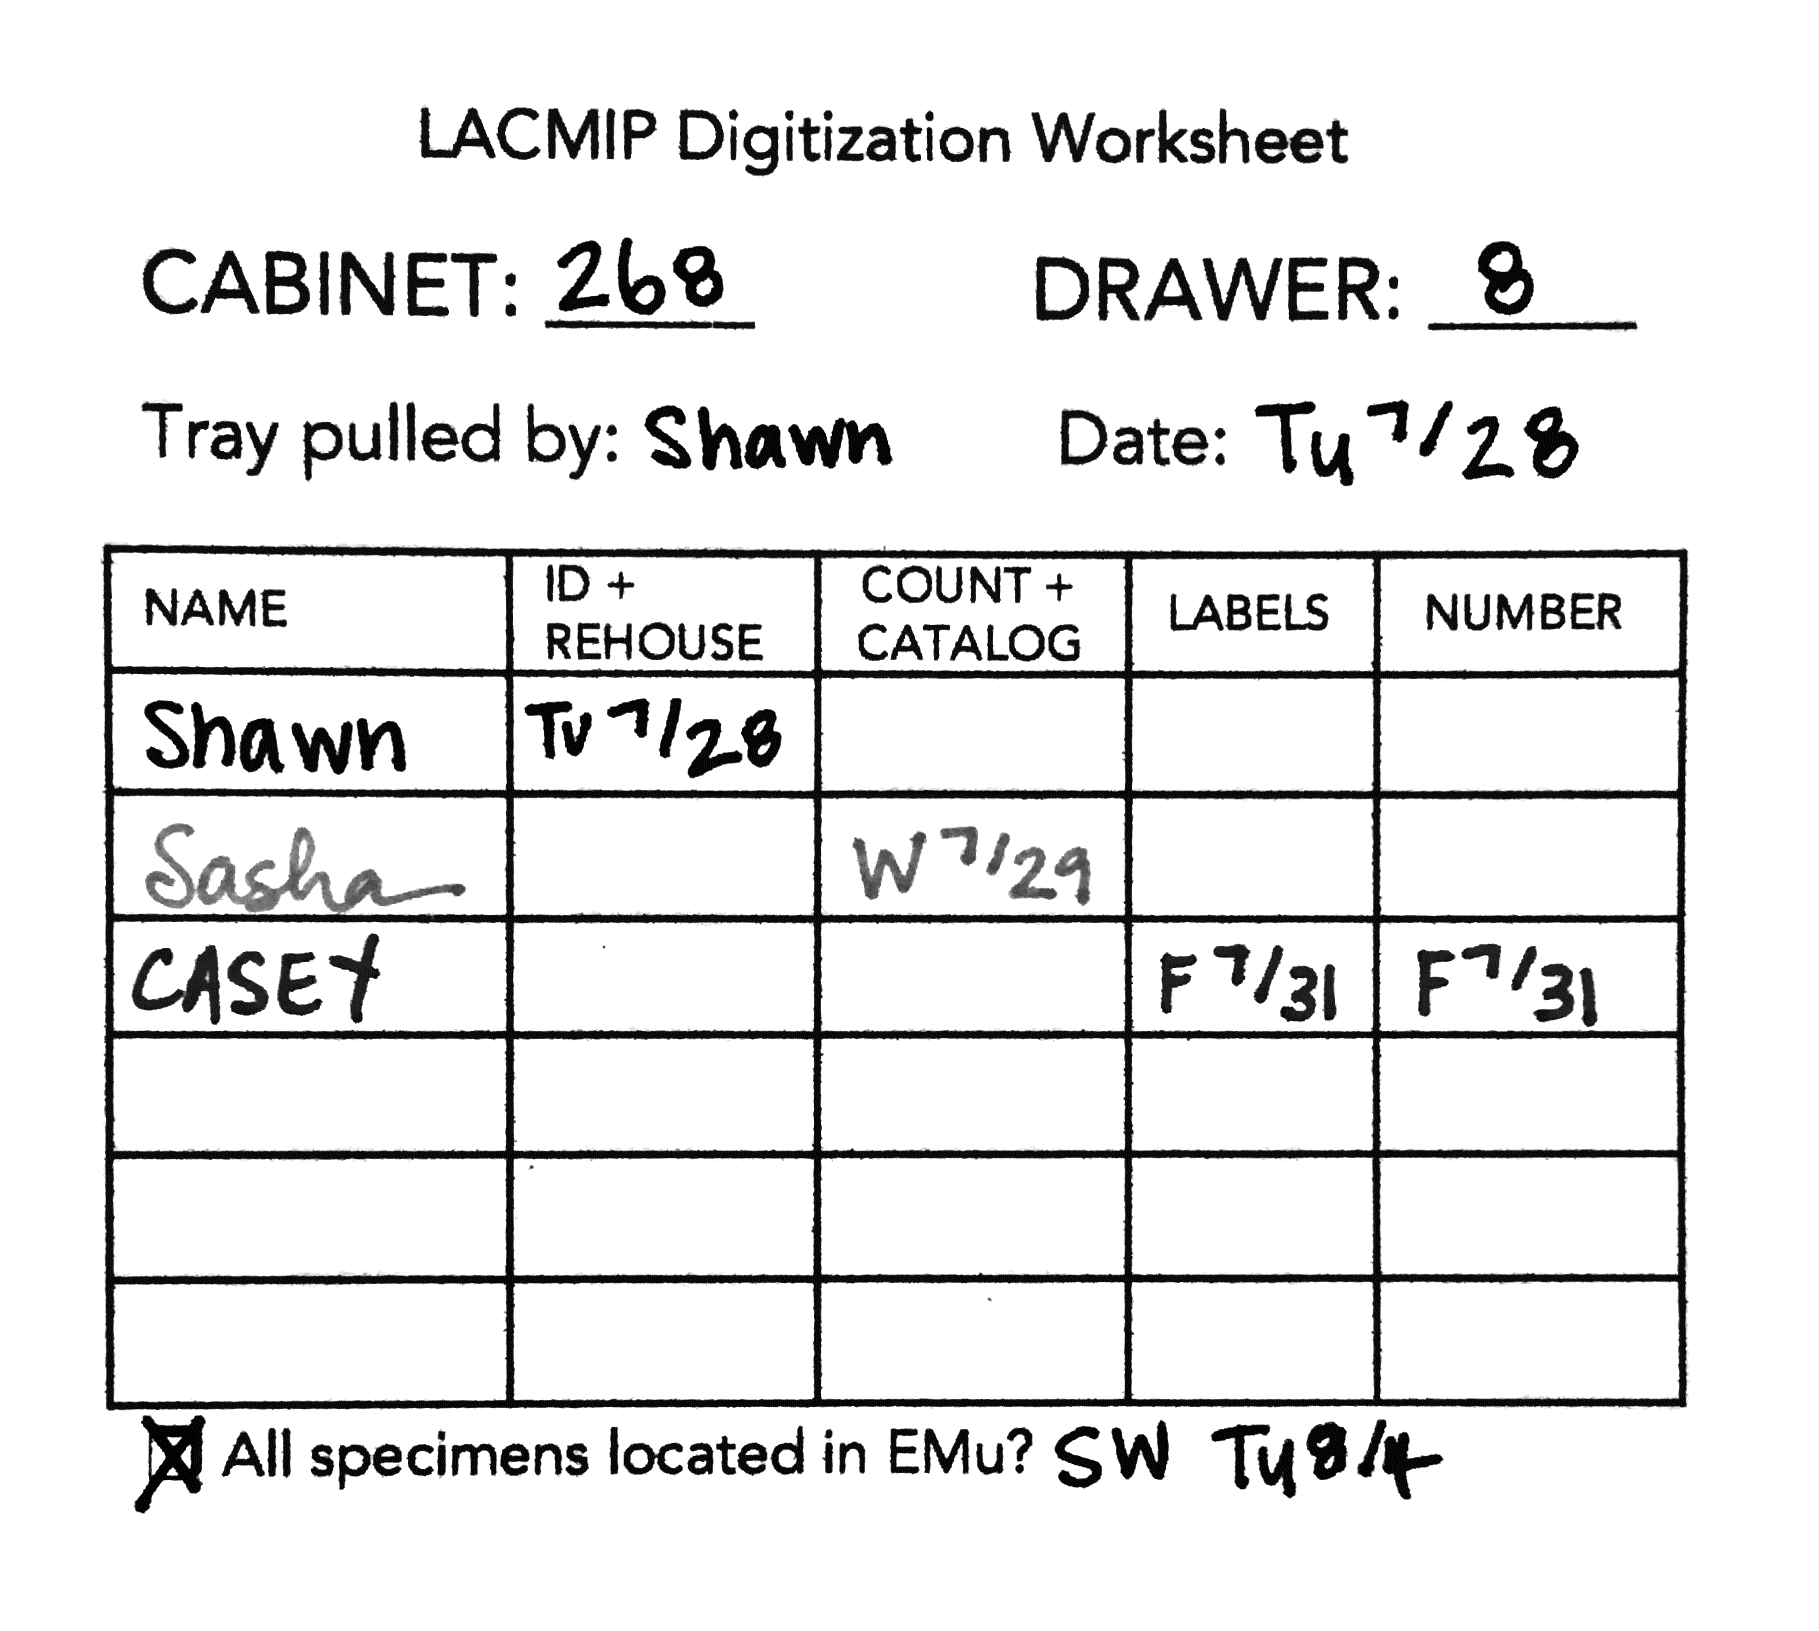 LACMIP Digitization Worksheet
CABINET: 268 DRAWER: 8
Tray pulled by: Shawn Date: Tu 7/28
NAME ID + REHOUSE COUNT + CATALOG LABELS NUMBER
Shawn Tu 7/28
Sasha W 7/29
CASEY F 7/31 F 7/31
All specimens located in EMu? SW Tu 8/4